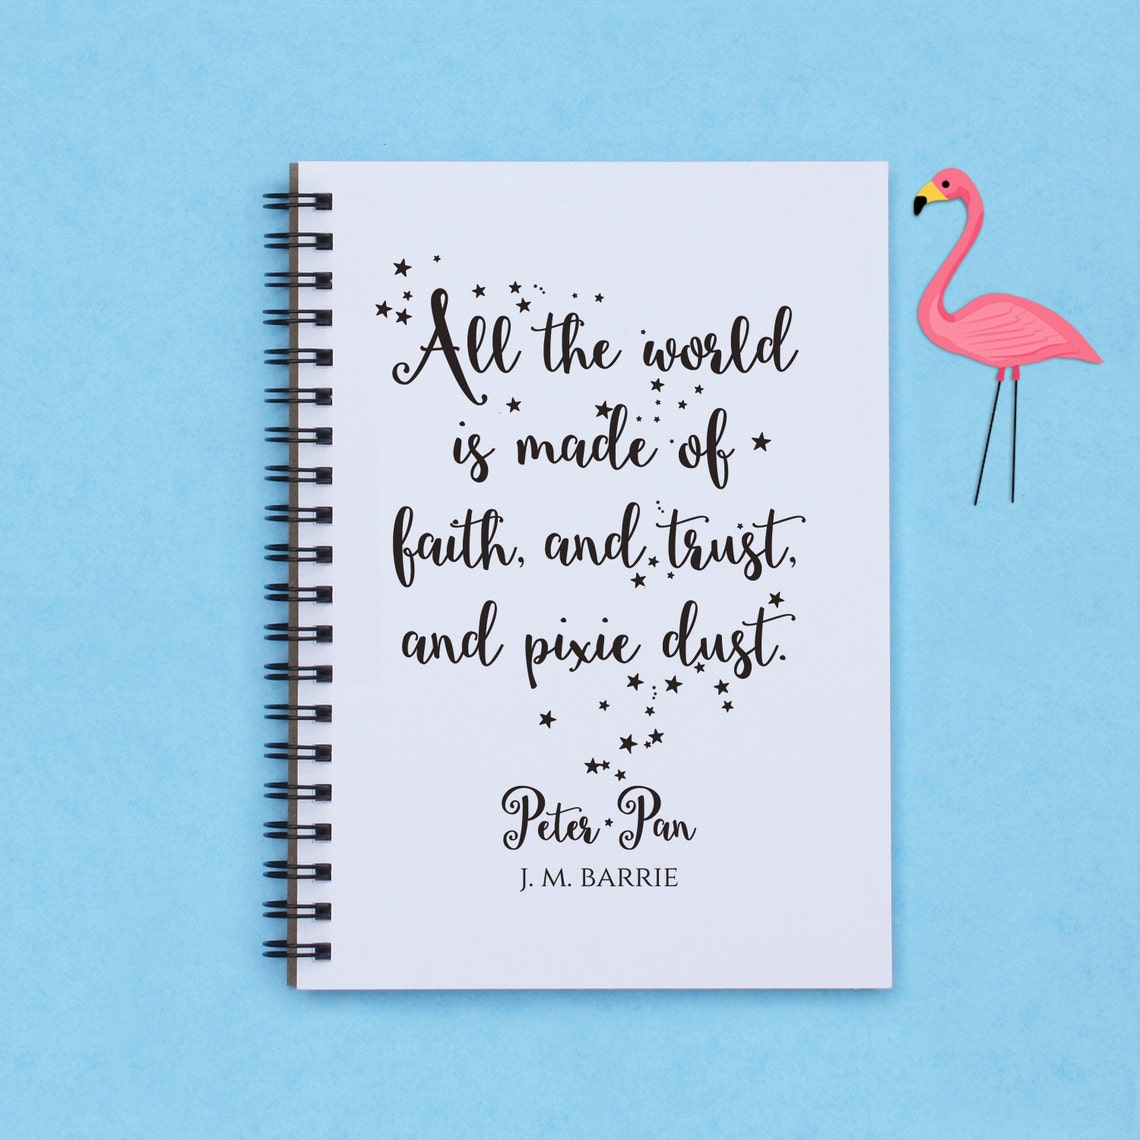 All the world
is made of
faith, and trust,
and pixie dust.
Peter Pan
J. M. BARRIE